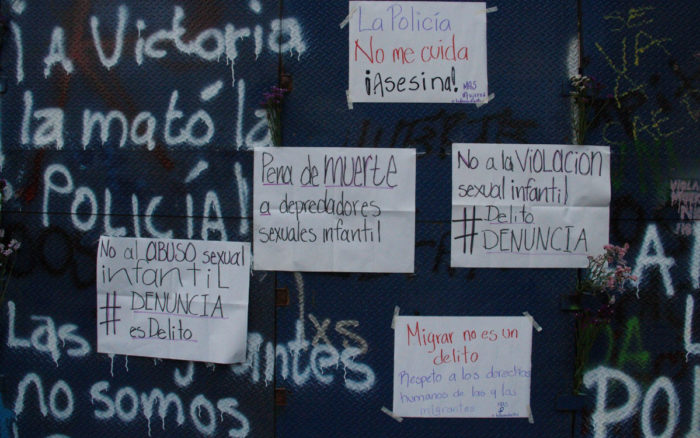 ¡A Victoria
la mató la
POLICÍA!
Las migrantes
no somos
La Policía
No me cuida
¡Asesina!
MAS
Mujeres
Pena de MUERTE
a depredadores
sexuales infantil
No a la VIOLACION
sexual infantil
# Delito
DENUNCIA
No al ABUSO sexual
infantil
# DENUNCIA
es Delito
Migrar no es un
delito
Respeto a los derechos
humanos de los y las
migrantes
LXS